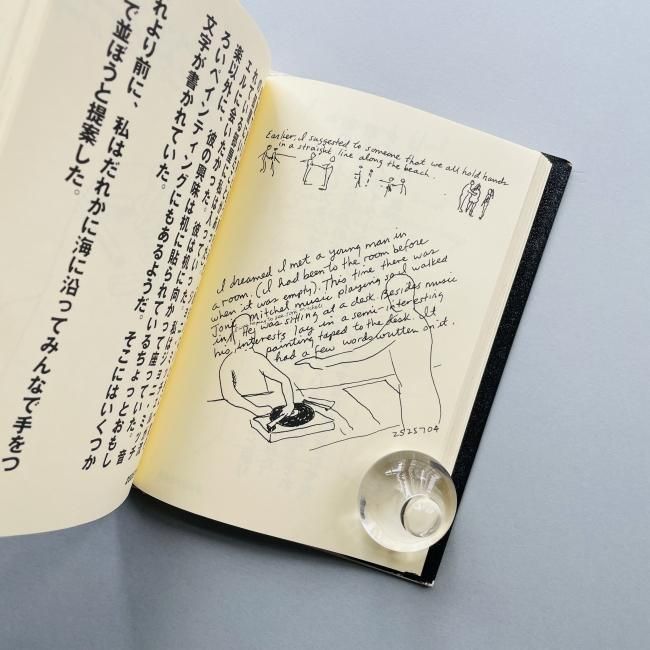 楽以外に、彼の興味は机に貼られているちょっとおもし
ろいペインティングにもあるようだ。そこにはいくつか
文字が書かれていた。
れより前に、私はだれかに海に沿ってみんなで手をつ
で並ぼうと提案した。
Earlier, I suggested to someone that we all hold hands
in a straight line along the beach.
I dreamed I met a young man in
a room. (I had been to the room before
when it was empty). This time there was
Joni Mitchel music playing so I walked
in. He was sitting at a desk. Besides music
his interests lay in a semi-interesting
painting taped to the desk. It
had a few words written on it.
2525704